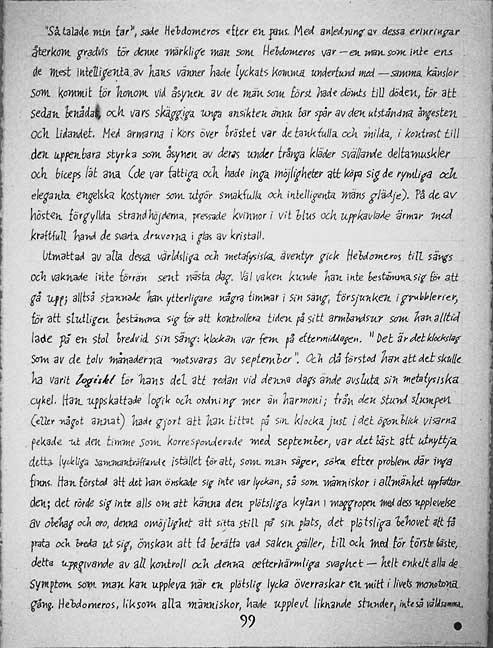 "Så talade min far", sade Hebdomeros efter en paus. Med anledning av dessa erinringar
återkom gradvis för denne märklige man som Hebdomeros var — en man som inte ens
de mest intelligenta av hans vänner hade lyckats komma underfund med — samma känslor
som kommit för honom vid åsynen av de män som först hade dömts till döden, för att
sedan benådas och vars skäggiga unga ansikten ännu bar spår av den utståndna ångesten
och lidandet. Med armarna i kors över bröstet var de tankfulla och milda, i kontrast till
den uppenbara styrka som åsynen av deras under trånga kläder svällande deltamuskler
och biceps lät ana (de var fattiga och hade inga möjligheter att köpa sig de rymliga och
eleganta engelska kostymer som utgör smakfulla och intelligenta mäns glädje). På de av
hösten förgyllda strandhöjderna, pressade kvinnor i vit blus och uppkavlade ärmar med
kraftfull hand de svarta druvorna i glas av kristall.
Utmattad av alla dessa världsliga och metafysiska äventyr gick Hebdomeros till sängs
och vaknade inte förrän sent nästa dag. Väl vaken kunde han inte bestämma sig för att
gå upp; alltså stannade han ytterligare några timmar i sin säng, försjunken i grubblerier,
för att slutligen bestämma sig för att kontrollera tiden på sitt armbandsur som han alltid
lade på en stol bredvid sin säng: klockan var fem på eftermiddagen. "Det är det klockslag
som av de tolv månaderna motsvaras av september". Och då förstod han att det skulle
ha varit logiskt för hans del att redan vid denna dags ände avsluta sin metafysiska
cykel. Han uppskattade logik och ordning mer än harmoni; från den stund slumpen
(eller något annat) hade gjort att han tittat på sin klocka just i det ögonblick visarna
pekade ut den timme som korresponderade med september, var det bäst att utnyttja
detta lyckliga sammanträffande istället för att, som man säger, söka efter problem där inga
finns. Han förstod att det han önskade sig inte var lyckan, så som människor i allmänhet uppfattar
den; det rörde sig inte alls om att känna den plötsliga kylan i maggropen med dess upplevelse
av obehag och oro, denna omöjlighet att sitta still på sin plats, det plötsliga behovet att få
prata och breda ut sig, önskan att få berätta vad saken gäller, till och med för förste bäste,
detta uppgivande av all kontroll och denna oefterhärmliga svaghet — helt enkelt alla de
symptom som man kan uppleva när en plötslig lycka överraskar en mitt i livets monotona
gång. Hebdomeros, liksom alla människor, hade upplevt liknande stunder, inte så våldsamma,
99